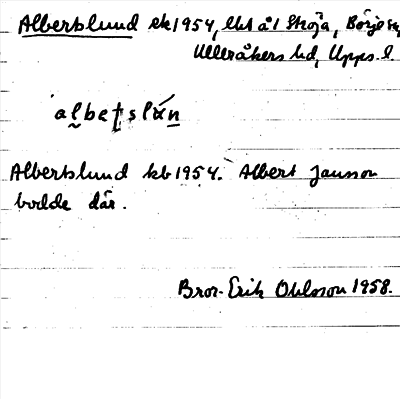 Albertslund ek 1954, lht å l Ströja, Börje sn,
Ulleråkers hd, Upps. l.
albetslun
Albertslund kb 1954. Albert Jansson
bodde där.
Bror-Erik Ohlsson 1958.